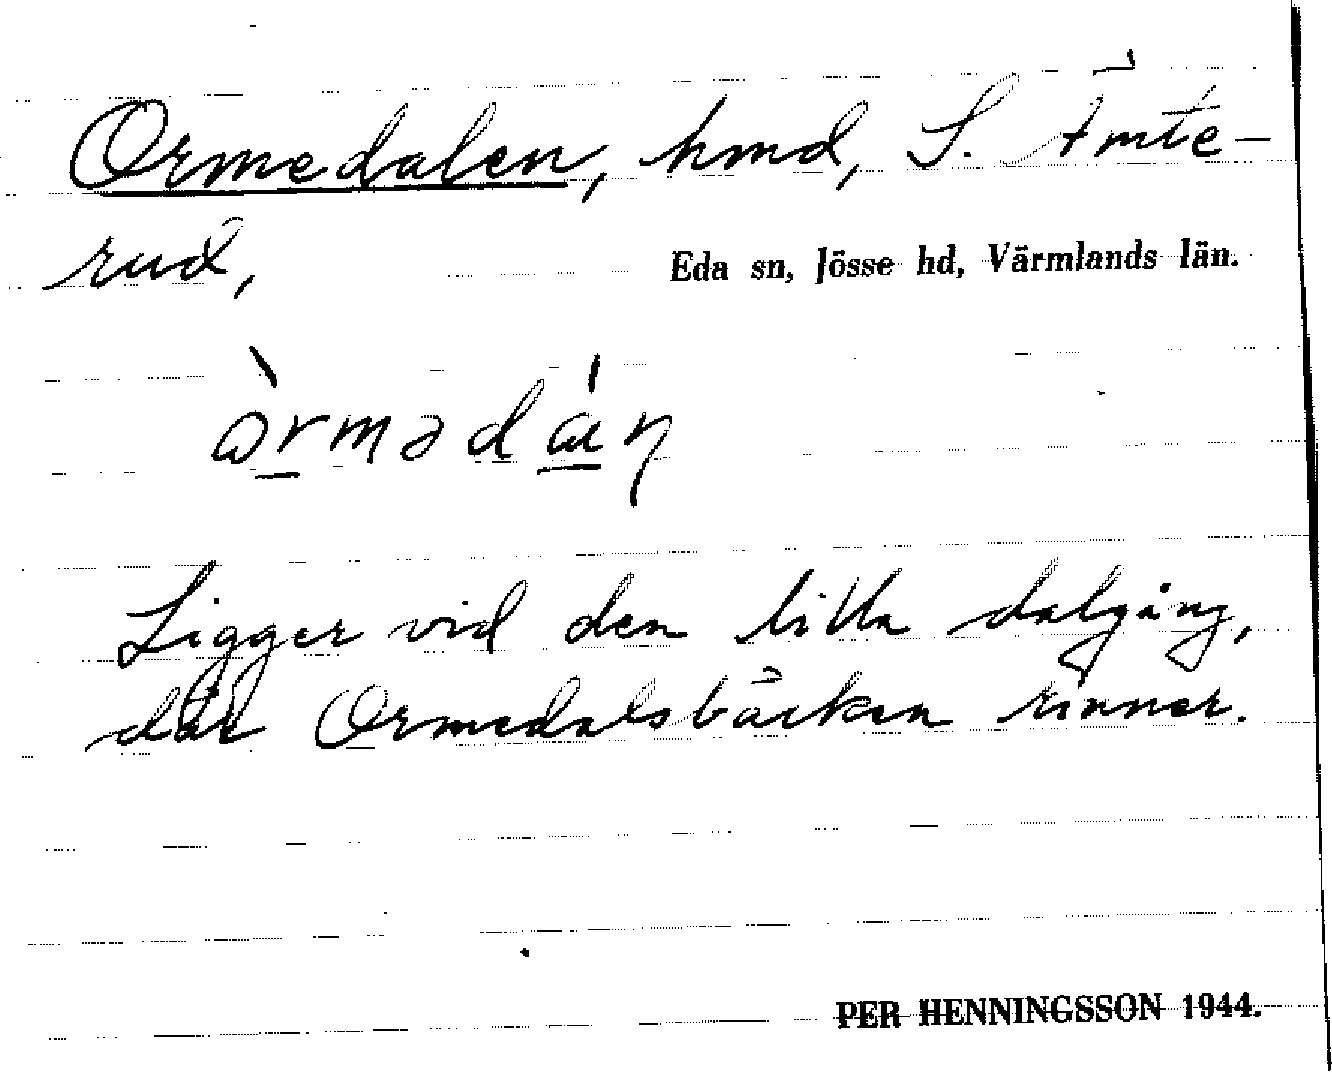 Ormedalen, hmd, S. Ämte-
rud,
Eda sn, Jösse hd, Värmlands län.
òrmədáɳ
Ligger vid den lilla dalgång,
där Ormedalsbäcken rinner.
PER HENNINGSSON 1944.